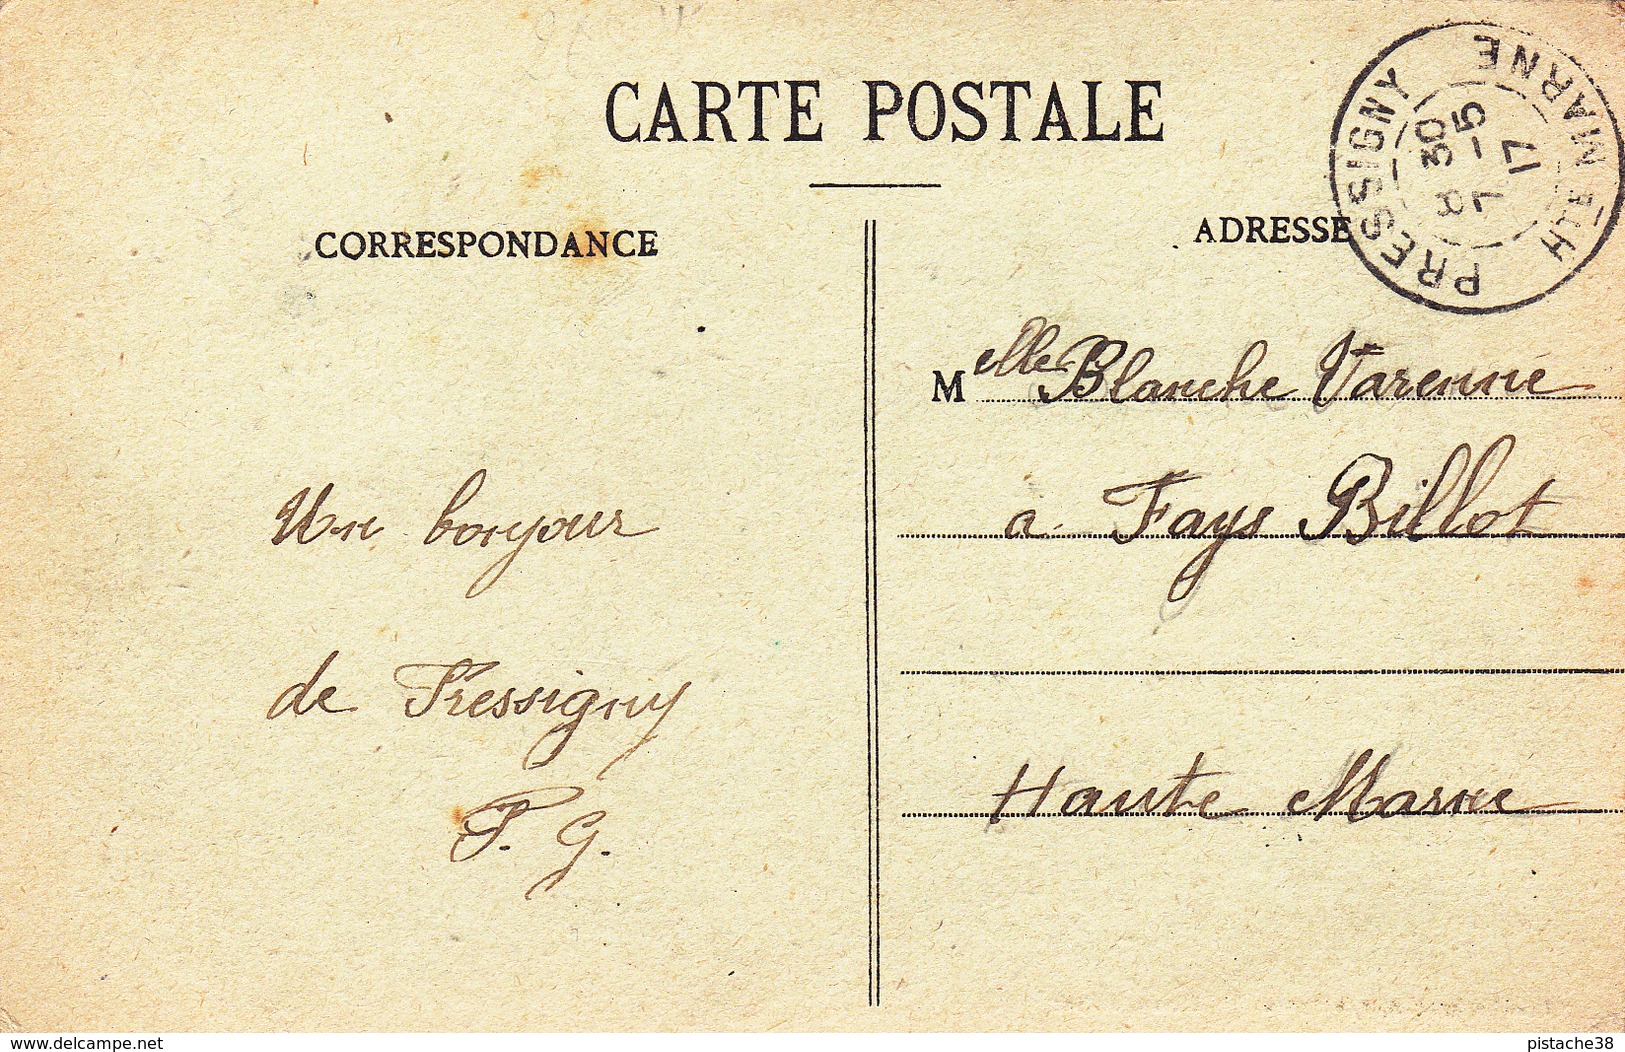 CARTE POSTALE
CORRESPONDANCE
ADRESSE
PRESSIGNY
HTE MARNE
8 30
7 -5
17
Melle Blanche Varenne
a Fays Billot
Haute Marne
Un bonjour
de Pressigny
P. G.
www.delcampe.net
pistache38